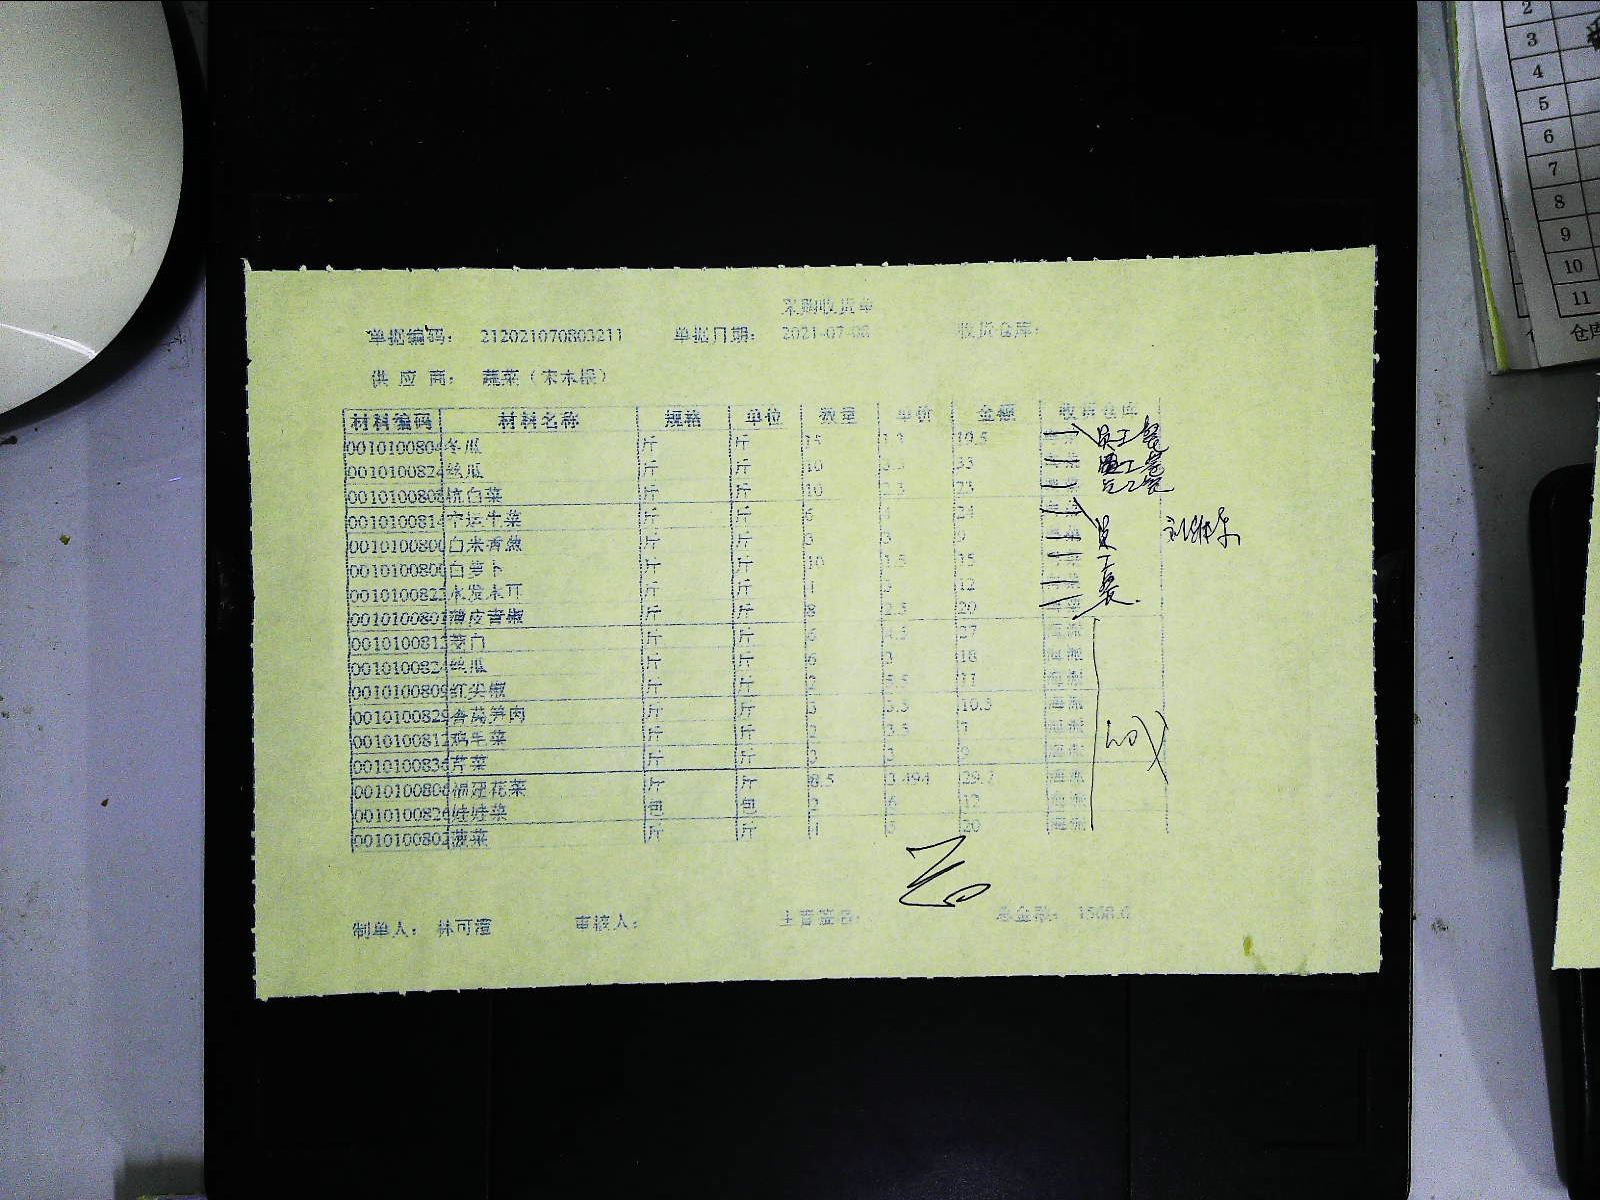 采购收货单
单据编码： 212021070803211 单据日期： 2021-07-08 收货仓库：
供 应 商： 蔬菜（宋木根）
材料编码 材料名称 规格 单位 数量 单价 金额 收货仓库
0010100804 冬瓜 斤 斤 15 1.3 19.5 员工餐
0010100824 丝瓜 斤 斤 10 3.3 33 员工餐
0010100808 杭白菜 斤 斤 10 2.3 23 员工餐
0010100814 空运生菜 斤 斤 6 4 24
0010100800 白米香葱 斤 斤 3 3 9 员工餐
0010100800 白萝卜 斤 斤 10 1.5 15
001010082 水发木耳 斤 斤 12
001010080 薄皮青椒 斤 斤 8 2.5 20
001010081 斤 斤 6 4.5 27 海派
001010082 丝瓜 斤 斤 6 3 18 海派
0010100809 红尖椒 斤 斤 2 5.5 11 海派
0010100829 香莴笋肉 斤 斤 3 3.5 10.5 海派
0010100812 鸡毛菜 斤 斤 2 3.5 7 海派
001010083 芹菜 斤 斤 3 3 9 海派
0010100806 福建花菜 斤 斤 8.5 3.494 29.7 海派
0010100826 娃娃菜 包 包 2 6 12 海派
0010100802 菠菜 斤 斤 20 海派
制单人： 林可澶 审核人： 主管签名： 总金额： 1508.0